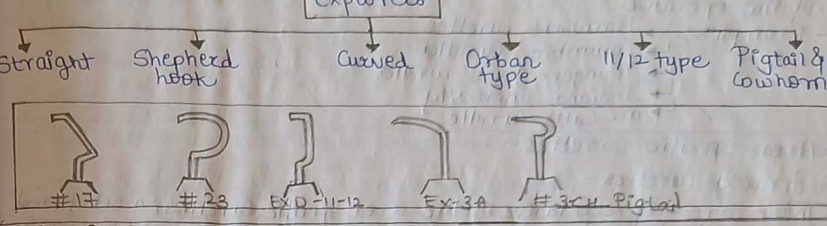 Explorers
Straight Shepherd hook Curved Orban type 11/12 type Pigtail & Cowhorn
#17 #23 EXD-11-12 EX-3A #3CH Pigtail